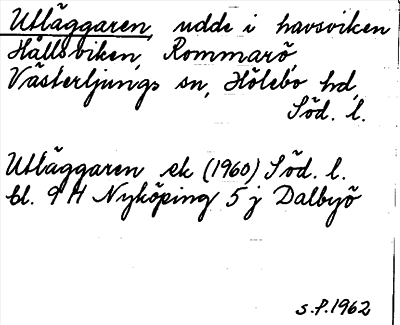 Utläggaren, udde i havsviken
Hållsviken, Rommarö,
Västerljungs sn, Hölebo hd,
Söd. l.
Utläggaren ek (1960) Söd. l.
bl. 9 H Nyköping 5 j Dalbyö
s.f. 1962